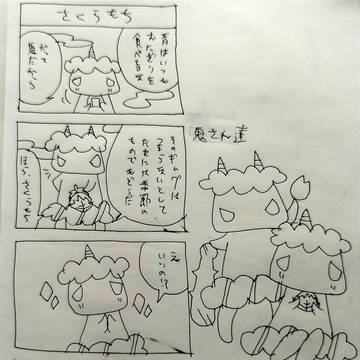 さくらもち
青はいつも
おにぎりを
食べるな
だって
鬼だから
そのギャグは
つまらないとして
たまには季節の
ものでもどうだ
ほら、さくらもち
え
いいの!?
鬼さん達